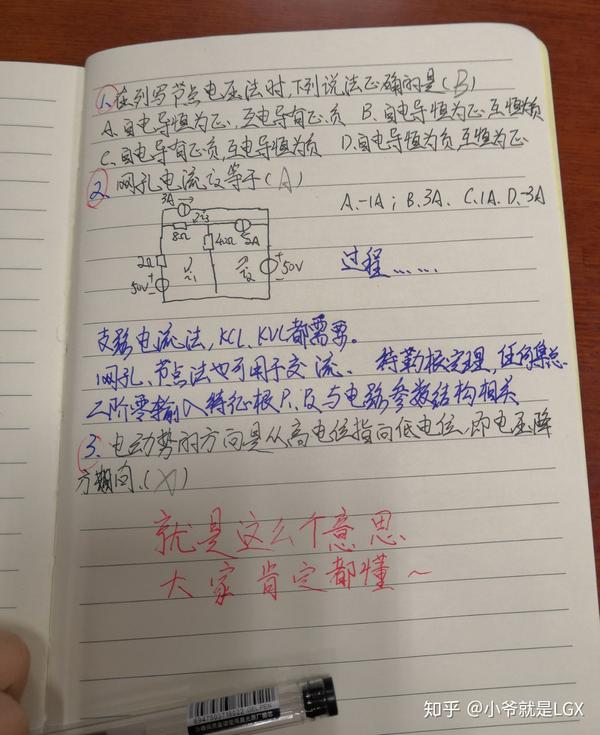 1.在列写节点电压法时,下列说法正确的是(B)
A.自电导恒为正,互电导有正负 B.自电导恒为正.互恒为负
C.自电导有正负,互电导恒为负 D.自电导恒为负,互恒为正
2.网孔电流i2等于(A)
A.-1A; B.3A. C.1A. D.-3A
3A
i3
8Ω
40Ω
2A
2Ω
i1
i2
50V
50V
过程……
支路电流法,KCL、KVL都需要。
网孔、节点法也可用于交流、特勒根定理,任何集总
二阶零输入特征根P1、P2与电路参数结构相关
3.电动势的方向是从高电位指向低电位,即电压降
方向.(X)
就是这么个意思
大家肯定都懂~
知乎 @小爷就是LGX